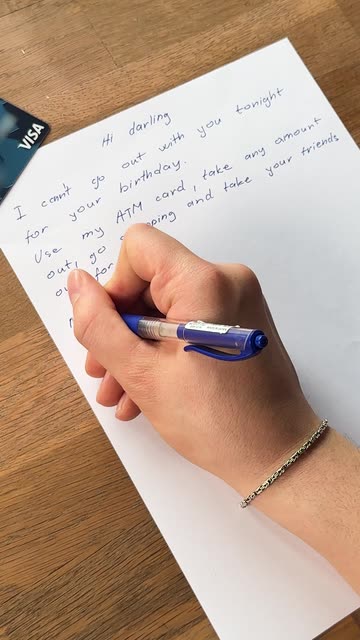 VISA
Hi darling
I can't go out with you tonight
for your birthday.
Use my ATM card, take any amount
out, go and take your friends
for